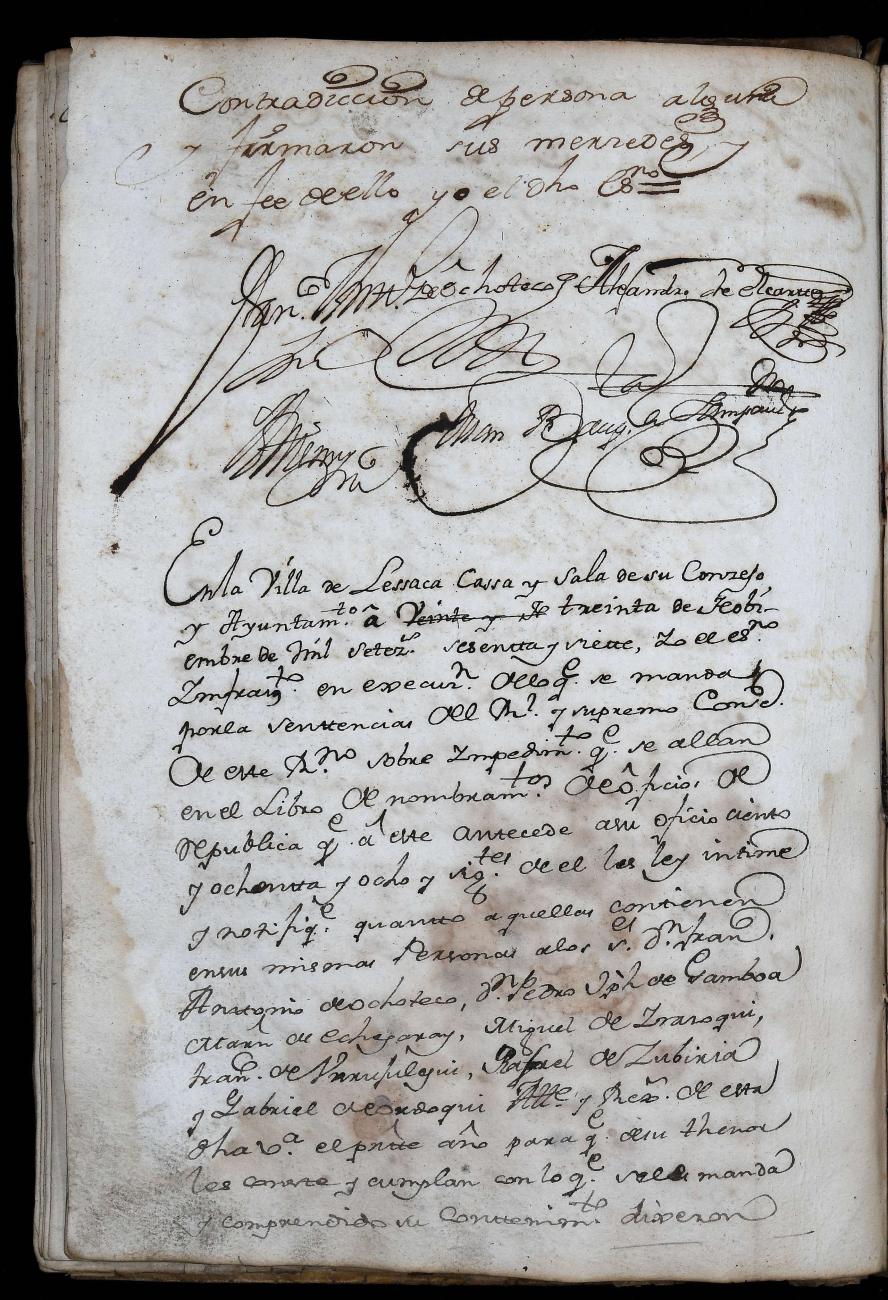 Contradiccion de persona alguna
y firmaron sus mercedes, y
en fee de ello yo el dho Es.no =
Fran.co Ant.o de Ochoteco Alejandro de
Juan Baup.ta
En la Villa de Lessaca Cassa y Sala de su Conzejo,
y Ayuntam.to â Veinte y treinta de Nobi-
embre de mil setez.s sesentta y siette, Yo el es.no
Ynfraq.to en execuz.n de lo q.e se manda
por la senttencias del R.l y supremo Conse.
de este R.no sobre Ympedim.to q.e se allan
en el Libro de nombram.tos de ôficios de
Republica q.e â este antecede a su oficio ciento
y ochentta y ocho y sig.tes de el les ley intime
y notifiq.e quantto aquellas contienen
en sus mismas Personas a los s.es D.n Fran.
Anttonio de Ochoteco, D.n Pedro Jph de Gamboa
Marn de Echegaray, Miguel de Yraroqui,
fran. de Rafael de Zubiria
y Gabriel de Ordoqui Alle y Rex. de esta
dha v.a el pntte año para q.e de su thenor
les conste y cumplan con lo q.e se les manda
y comprendido su Conttenim.to dixeron